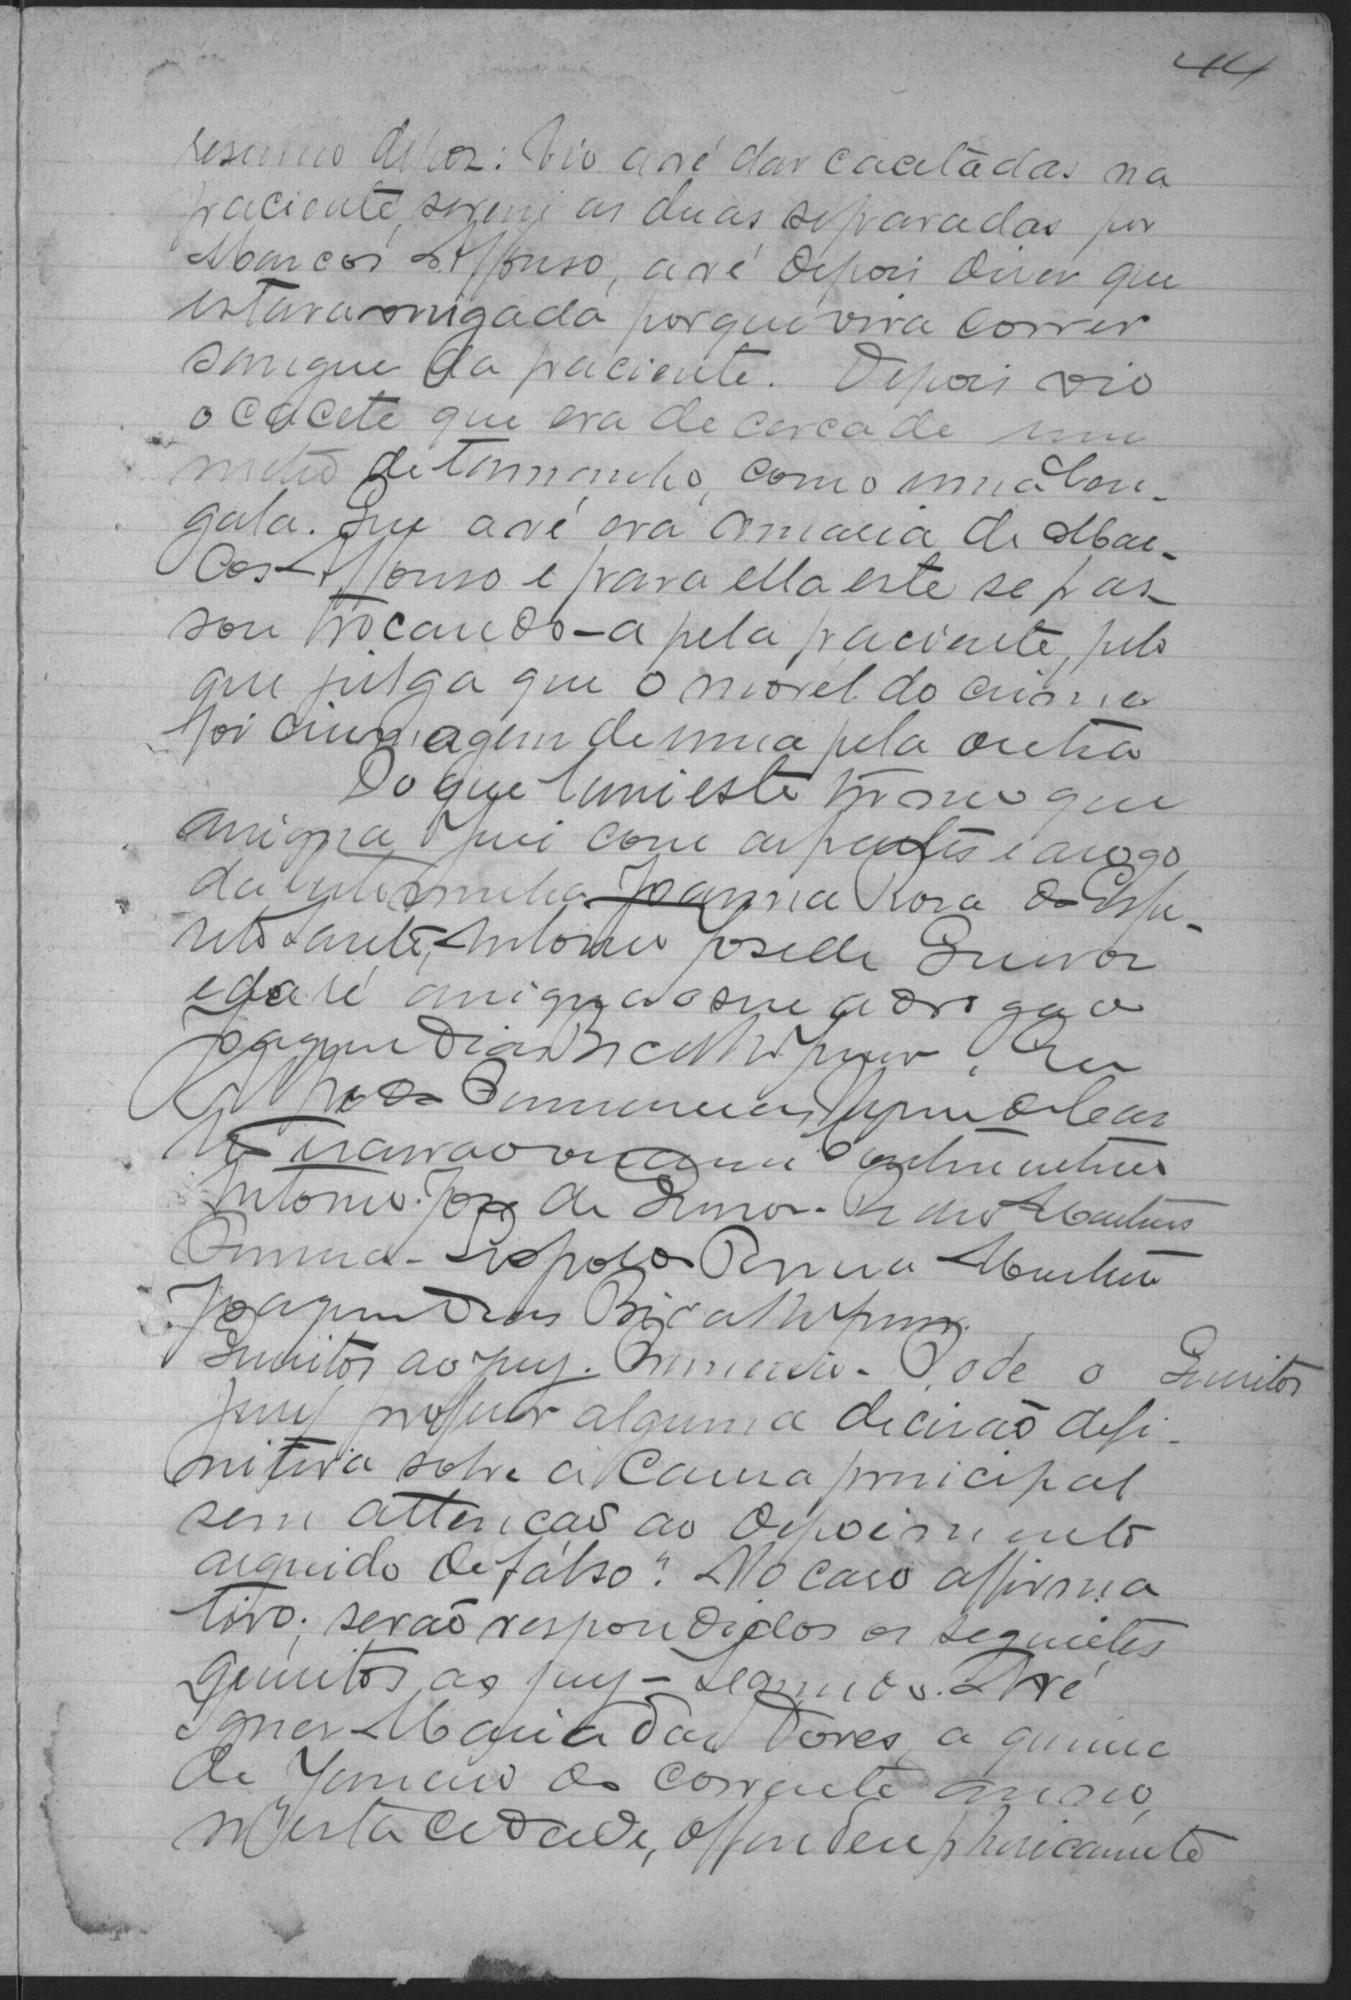 44
resumo depoz: Vio a ré dar cacetadas na
paciente, serem as duas separadas por
Marcos Affonso, a ré depois dizer que
estava vingada porque vira correr
sangue da paciente. Depois vio
o cacete que era de cerca de um
metro de tamanho, como uma ben-
gala. Que a ré era amasia de Mar-
cos Affonso e para ella este se pas-
sou trocando-a pela paciente, pelo
que julga que o movel do crime
foi ciumagem de uma pela outra
Do que lavrei este termo que
assigna o Juiz com as partes e a rogo
da testemunha Joanna Rosa do Espi-
rito Santo, Antonio José de
e da ré assigna o seu advogado
Joaquim Dias Bicalho Junior. Eu
Antonio José de
Leopoldo Pereira
Joaquim Dias Bicalho Junior
Quesitos ao jury. Primeiro - Póde o Quesitos
jury proferir alguma decisão defi-
nitiva sobre a causa principal
sem attenção ao depoimento
arguido de falso? No caso affirma
tivo, serão respondidos os seguintes
quesitos ao jury - Segundo. A ré
Ignez Maria das Dores, a quinze
de Janeiro do corrente anno,
n'esta cidade, offendeu phisicamente